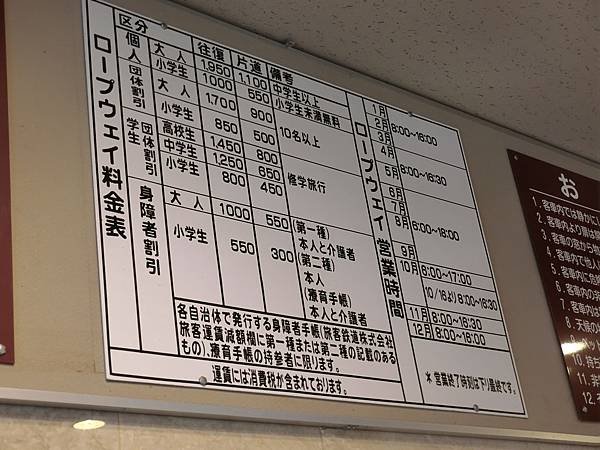 ロープウェイ料金表
区分 往復 片道 備考
個人 大人 1,950 1,100 中学生以上
小学生 1000 550 小学生未満無料
団体割引 大人 1,700 900 10名以上
小学生 850 500
学生団体割引 高校生 1,450 800 修学旅行
中学生 1,250 650
小学生 800 450
身障者割引 大人 1000 550 (第一種)
本人と介護者
小学生 550 300 (第二種)
本人
(療育手帳)
本人と介護者
各自治体で発行する身障者手帳(旅客鉄道株式会社
旅客運賃減額欄に第一種または第二種の記載のある
もの)、療育手帳の持参者に限ります。
運賃には消費税が含まれております。
ロープウェイ営業時間
1月
2月 8:00~16:00
3月
4月
5月 8:00~16:30
6月
7月
8月 6:00~18:00
9月
10月 6:00~17:00
10/16より 8:00~16:30
11月 8:00~16:30
12月 8:00~16:00
* 営業終了時刻は下り最終です。
お
1.客車内では静かにし
2.客車内より扉は
3.客車の窓から物
4.客車内で他人
5.客車内に危
6.客車内の
7.客車内は
8.天候の
9.ペット
10.持ち
11.非
12.